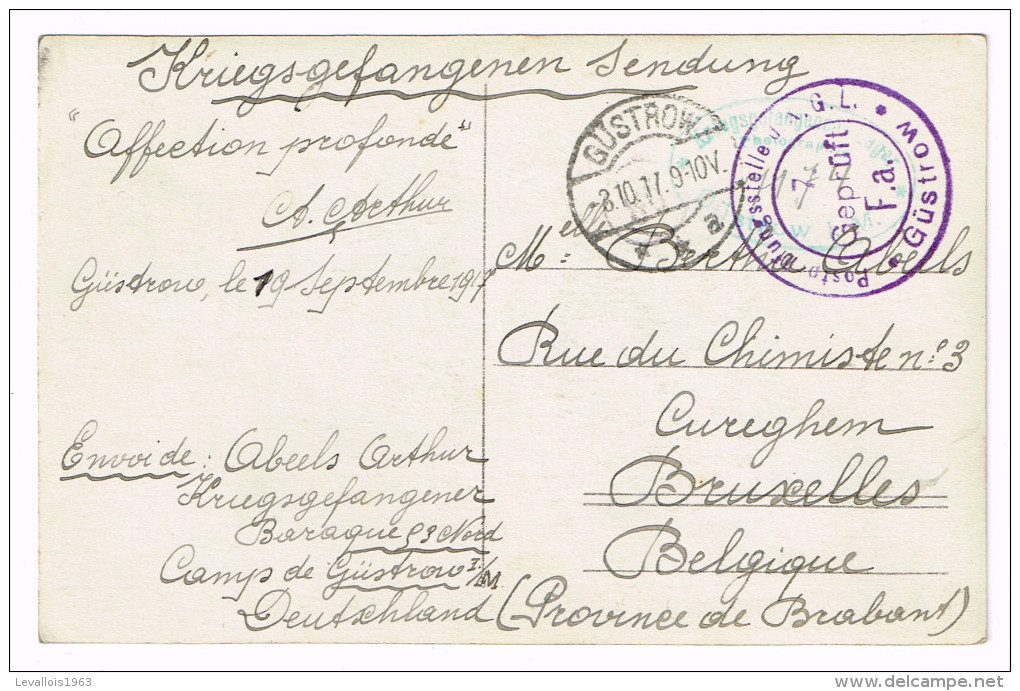 Kriegsgefangenen Sendung
"Affection profonde"
A. Arthur
Güstrow, le 19 Septembre 1917
Envoi de: Abeels Arthur
Kriegsgefangener
Baraque 53 Nord
Camp de Güstrow I/M.
Deutschland
GÜSTROW
8.10.17.9-10V.
* * a
G.L. * Güstrow *
Geprüft
F.a.
7
Melle Bertha Abeels
Rue du Chimiste n:°3
Cureghem
Bruxelles
Belgique
(Province de Brabant)
Levallois1963
delcampe.net